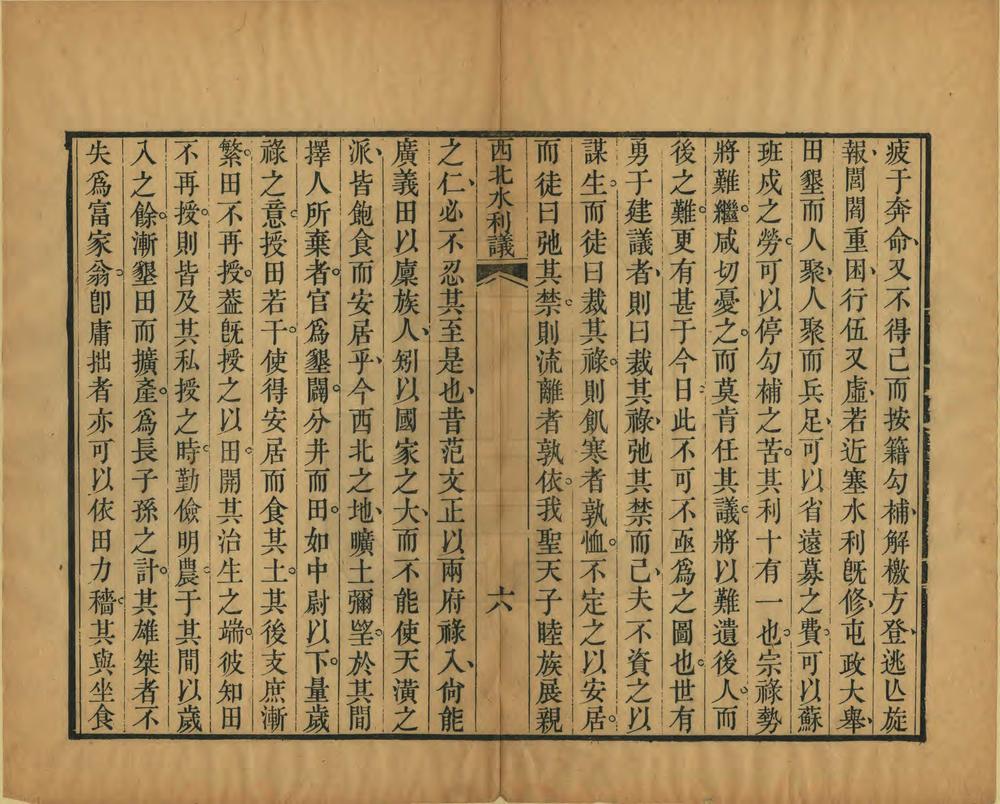 疲于奔命、又不得已而按籍勾補、解檄方登、逃亾旋
報、閭閻重困、行伍又虛、若近塞水利旣修、屯政大舉、
田墾而人聚、人聚而兵足、可以省遠募之費、可以蘇
班戍之勞。可以停勾補之苦。其利十有一也。宗祿勢
將難繼。咸切憂之。而莫肯任其議。將以難遺後人。而
後之難。更有甚于今日。此不可不亟爲之圖也。世有
勇于建議者、則曰裁其祿、弛其禁而已、夫不資之以
謀生。而徒曰裁其祿。則飢寒者孰恤。不定之以安居。
而徒曰弛其禁。則流離者孰依。我聖天子睦族展親
西北水利議 六
之、仁、必不忍其至是也、昔范文正以兩府祿入、尙能
廣義田以廩族人、矧以國家之大、而不能使天潢之
派、皆飽食而安居乎、今西北之地、曠土彌望。於其間
擇人所棄者。官爲墾闢。分井而田。如中尉以下。量歲
祿之意。授田若干。使得安居而食其土。其後支庶漸
繁。田不再授。葢旣授之以田。開其治生之端。彼知田
不再授。則皆及其私授之時。勤儉明農。于其間以歲
入之餘。漸墾田而擴產。爲長子孫之計。其雄桀者不
失爲富家翁。卽庸拙者亦可以依田力穡。其與坐食